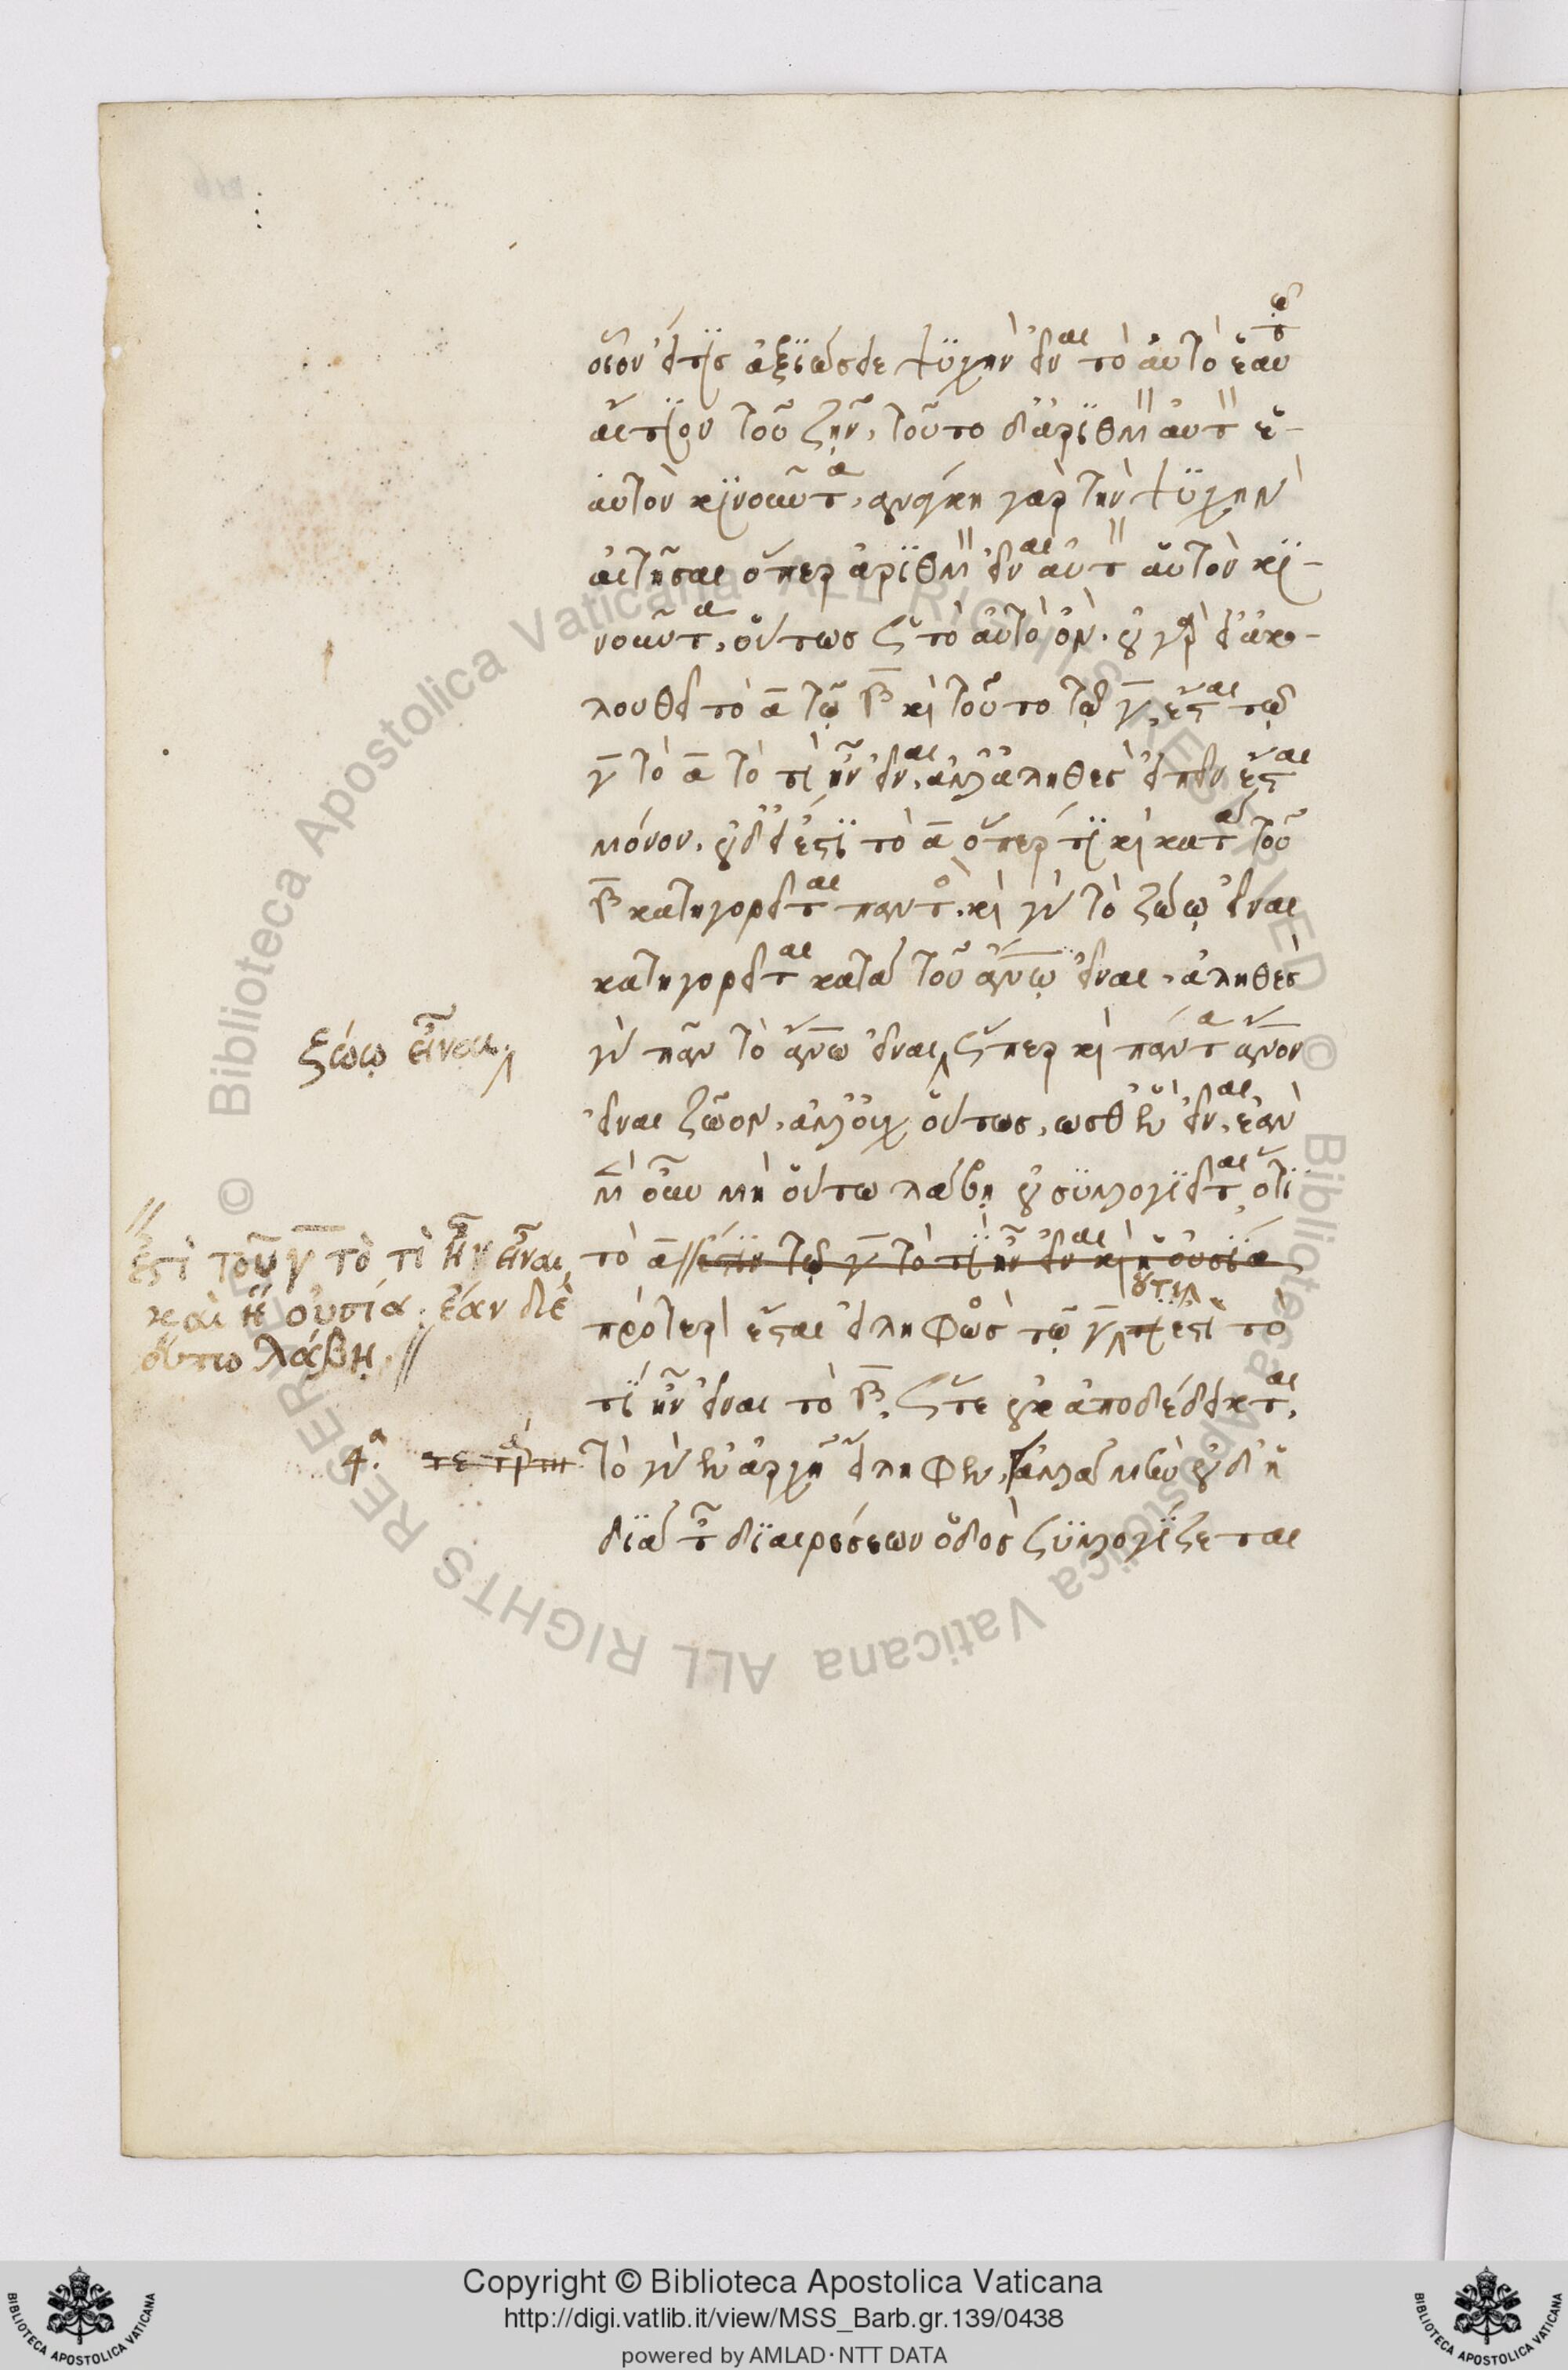 οἷον εἴ τις ἀξιώσειε ψυχὴν εἶναι τὸ αὐτὸ ἑαυτῷ
αἴτιον τοῦ ζῆν, τοῦτο δ' ἀριθμὸν αὐτὸν ἑ-
αυτὸν κινοῦντα, ἀνάγκη γὰρ τὴν ψυχὴν
αἰτῆσαι ὅπερ ἀριθμὸν εἶναι αὐτὸν αὑτὸν κι-
νοῦντα, οὕτως ὡς τὸ αὐτὸ ὄν. οὐ γὰρ εἰ ἀκο-
λουθεῖ τὸ α τῷ β καὶ τοῦτο τῷ γ, ἔσται τῷ
γ τὸ α τὸ τί ἦν εἶναι, ἀλλ' ἀληθὲς εἰπεῖν ἔσται
μόνον. οὐδ' εἰ ἔστι τὸ α ὅπερ τι καὶ κατὰ τοῦ
β κατηγορεῖται παντὸς. καὶ γὰρ τὸ ζώῳ εἶναι
κατηγορεῖται κατὰ τοῦ ἀνῳ εἶναι, ἀληθὲς
γὰρ πᾶν τὸ ἀνω εἶναι ὥσπερ καὶ πάντα ἀνον
ζώῳ εἶναι
εἶναι ζῷον, ἀλλ' οὐχ οὕτως, ὡσθ' ἓν εἶναι, ἐὰν
μὲν οὖν μὴ οὕτω λάβῃ οὐ συλλογιεῖται ὅτι
τὸ α ἐστὶν τῷ γ τὸ τί ἦν εἶναι καὶ ἡ οὐσία
ἐστὶ τοῦ γ τὸ τὶ ἦν εἶναι
καὶ ἡ οὐσία. ἐὰν δὲ
οὕτω λάβῃ,
πρότερον ἔσται εἰληφὼς τῷ γ τί ἐστι τὸ
τί ἦν εἶναι τὸ β, ὥστε οὐκ ἀποδέδεικται,
4.α τὸ γὰρ ἐν ἀρχῇ εἴληφεν, ἀλλὰ μὴν οὐδ' ἡ
διὰ τῶν διαιρέσεων ὁδὸς συλλογίζεται
© Biblioteca Apostolica Vaticana ALL RIGHTS RESERVED © Biblioteca Apostolica Vaticana ALL RIGHTS RESERVED
Copyright © Biblioteca Apostolica Vaticana
http://digi.vatlib.it/view/MSS_Barb.gr.139/0438
powered by AMLAD · NTT DATA
BIBLIOTECA APOSTOLICA VATICANA
BIBLIOTECA APOSTOLICA VATICANA